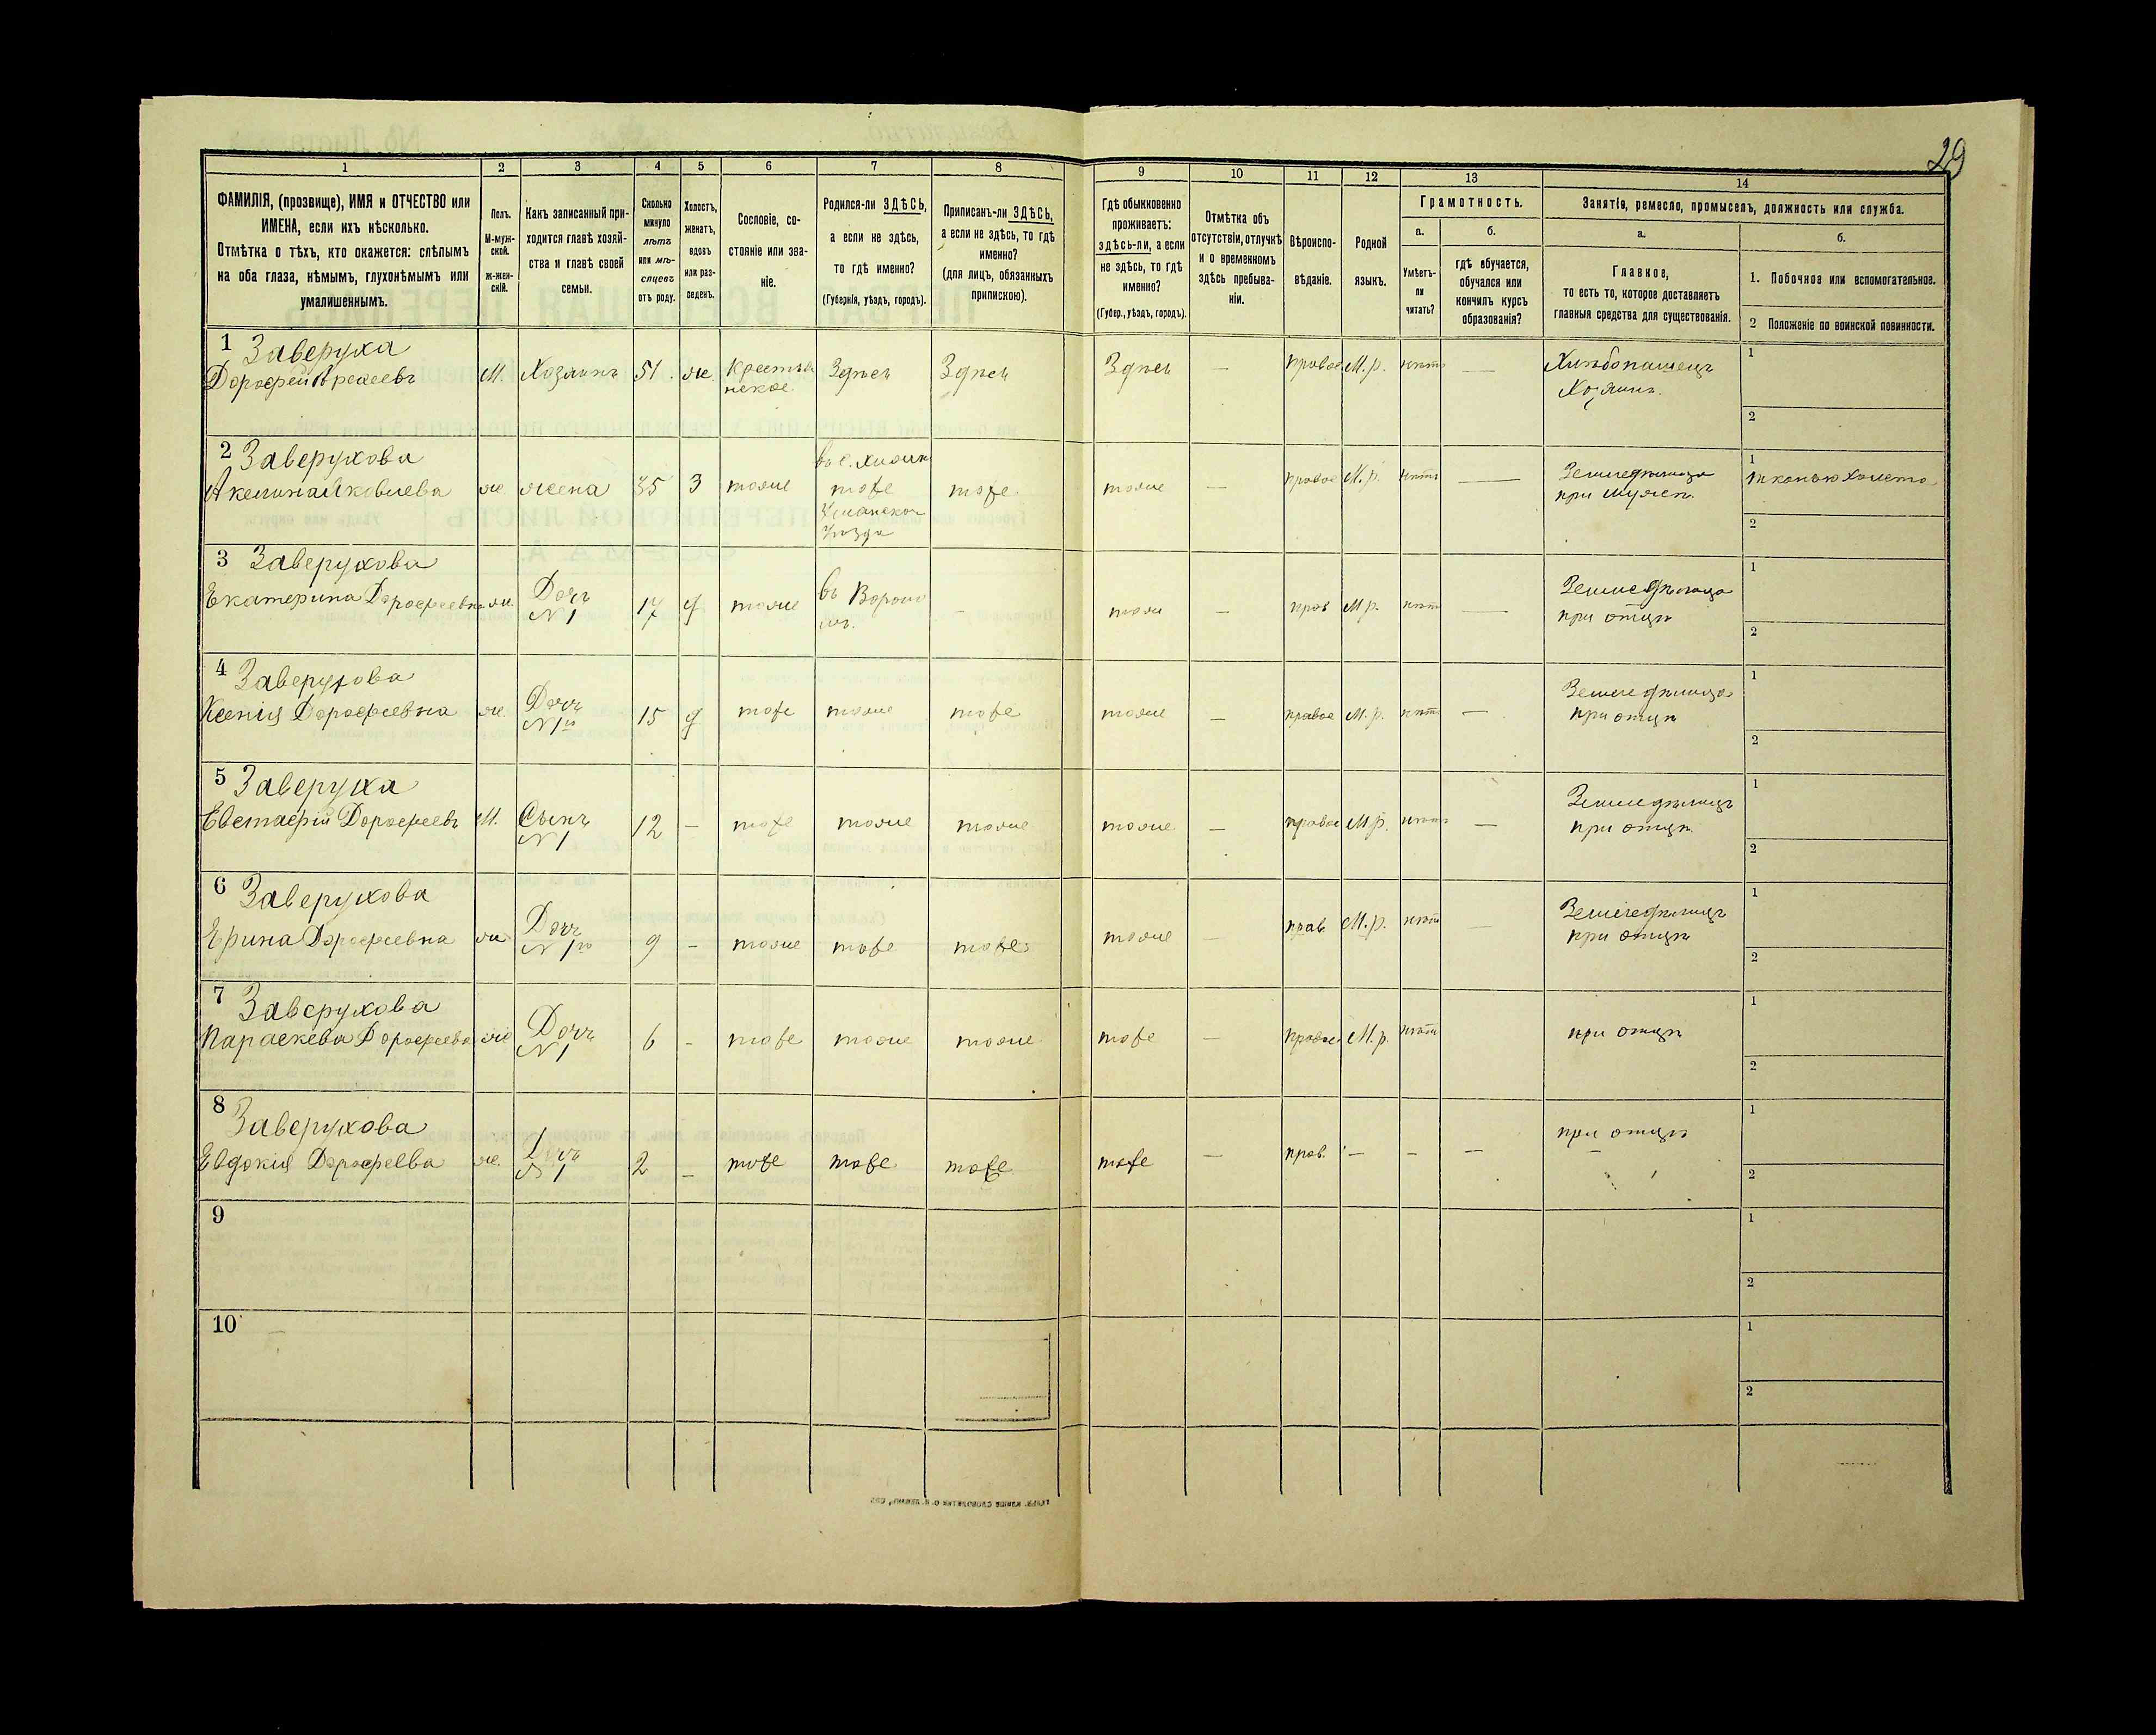 29
1 2 3 4 5 6 7 8 9 10 11 12 13 14
ФАМИЛІЯ, (прозвище), ИМЯ и ОТЧЕСТВО или
ИМЕНА, если ихъ нѣсколько.
Отмѣтка о тѣхъ, кто окажется: слѣпымъ
на оба глаза, нѣмымъ, глухонѣмымъ или
умалишеннымъ.
Полъ.
М-муж-
ской.
ж-жен-
скій.
Какъ записанный при-
ходится главѣ хозяй-
ства и главѣ своей
семьи.
Сколько
минуло
лѣтъ
или мѣ-
сяцевъ
отъ роду.
Холостъ,
женатъ,
вдовъ
или раз-
веденъ.
Сословіе, со-
стояніе или зва-
ніе.
Родился-ли ЗДѢСЬ,
а если не здѣсь,
то гдѣ именно?
(Губернія, уѣздъ, городъ).
Приписанъ-ли ЗДѢСЬ,
а если не здѣсь, то гдѣ
именно?
(для лицъ, обязанныхъ
припискою).
Гдѣ обыкновенно
проживаетъ:
здѣсь-ли, а если
не здѣсь, то гдѣ
именно?
(Губер., уѣздъ, городъ).
Отмѣтка объ
отсутствіи, отлучкѣ
и о временномъ
здѣсь пребыва-
ніи.
Вѣроиспо-
вѣданіе.
Родной
языкъ.
Грамотность.
а.
Умѣетъ-
ли
читать?
б.
гдѣ обучается,
обучался или
кончилъ курсъ
образованія?
Занятіе, ремесло, промыселъ, должность или служба.
а.
Главное,
то есть то, которое доставляетъ
главныя средства для существованія.
б.
1. Побочное или вспомогательное.
2 Положеніе по воинской повинности.
1 Заверуха
Дорофей
М. Хозяинъ 51 же. Крестья
нское.
Здѣсь Здѣсь Здѣсь — правос М.р. нѣтъ —
Хлѣбопашецъ
Хозяинъ.
1
2
2 Заверухова
Акелина Яковлева
же. жена 35 З тоже
тоже
Уманског
Уѣзда
тоже тоже — правос М.р. нѣтъ —
Земледѣлица
при мужѣ.
1
2
3 Заверухова
Екатерина Дорофеевна
же. Дочь
N 1
17 д тоже
въ
— тоже прав М р. нѣтъ —
Земледѣлица
при отцѣ
1
2
4 Заверухова
Ксенія Дорофеевна
же. Дочь
N 1го
15 д тоже тоже тоже тоже — правос М.р. нѣтъ —
Земледѣлица
при отцѣ
1
2
5 Заверуха
Евстафій Дорофеевъ
М. Сынъ
N 1
12 – тоже тоже тоже тоже — правос М.р. нѣтъ —
Земледѣлецъ
при отцѣ
1
2
6 Заверухова
Ерина Дорофеевна
же Дочь
N 1го
9 – тоже тоже тоже тоже — прав М.р. нѣтъ —
Земледѣлецъ
при отцѣ
1
2
7 Заверухова
Параскева Дорофеева
же Дочь
N 1
6 – тоже тоже тоже тоже — правос М.р. нѣтъ
при отцѣ
1
2
8 Заверухова
Евдокія Дорофеева
же. Дочь
N 1
2 – тоже тоже тоже тоже — прав. — — —
при отцѣ
1
2
9
1
2
10
1
2